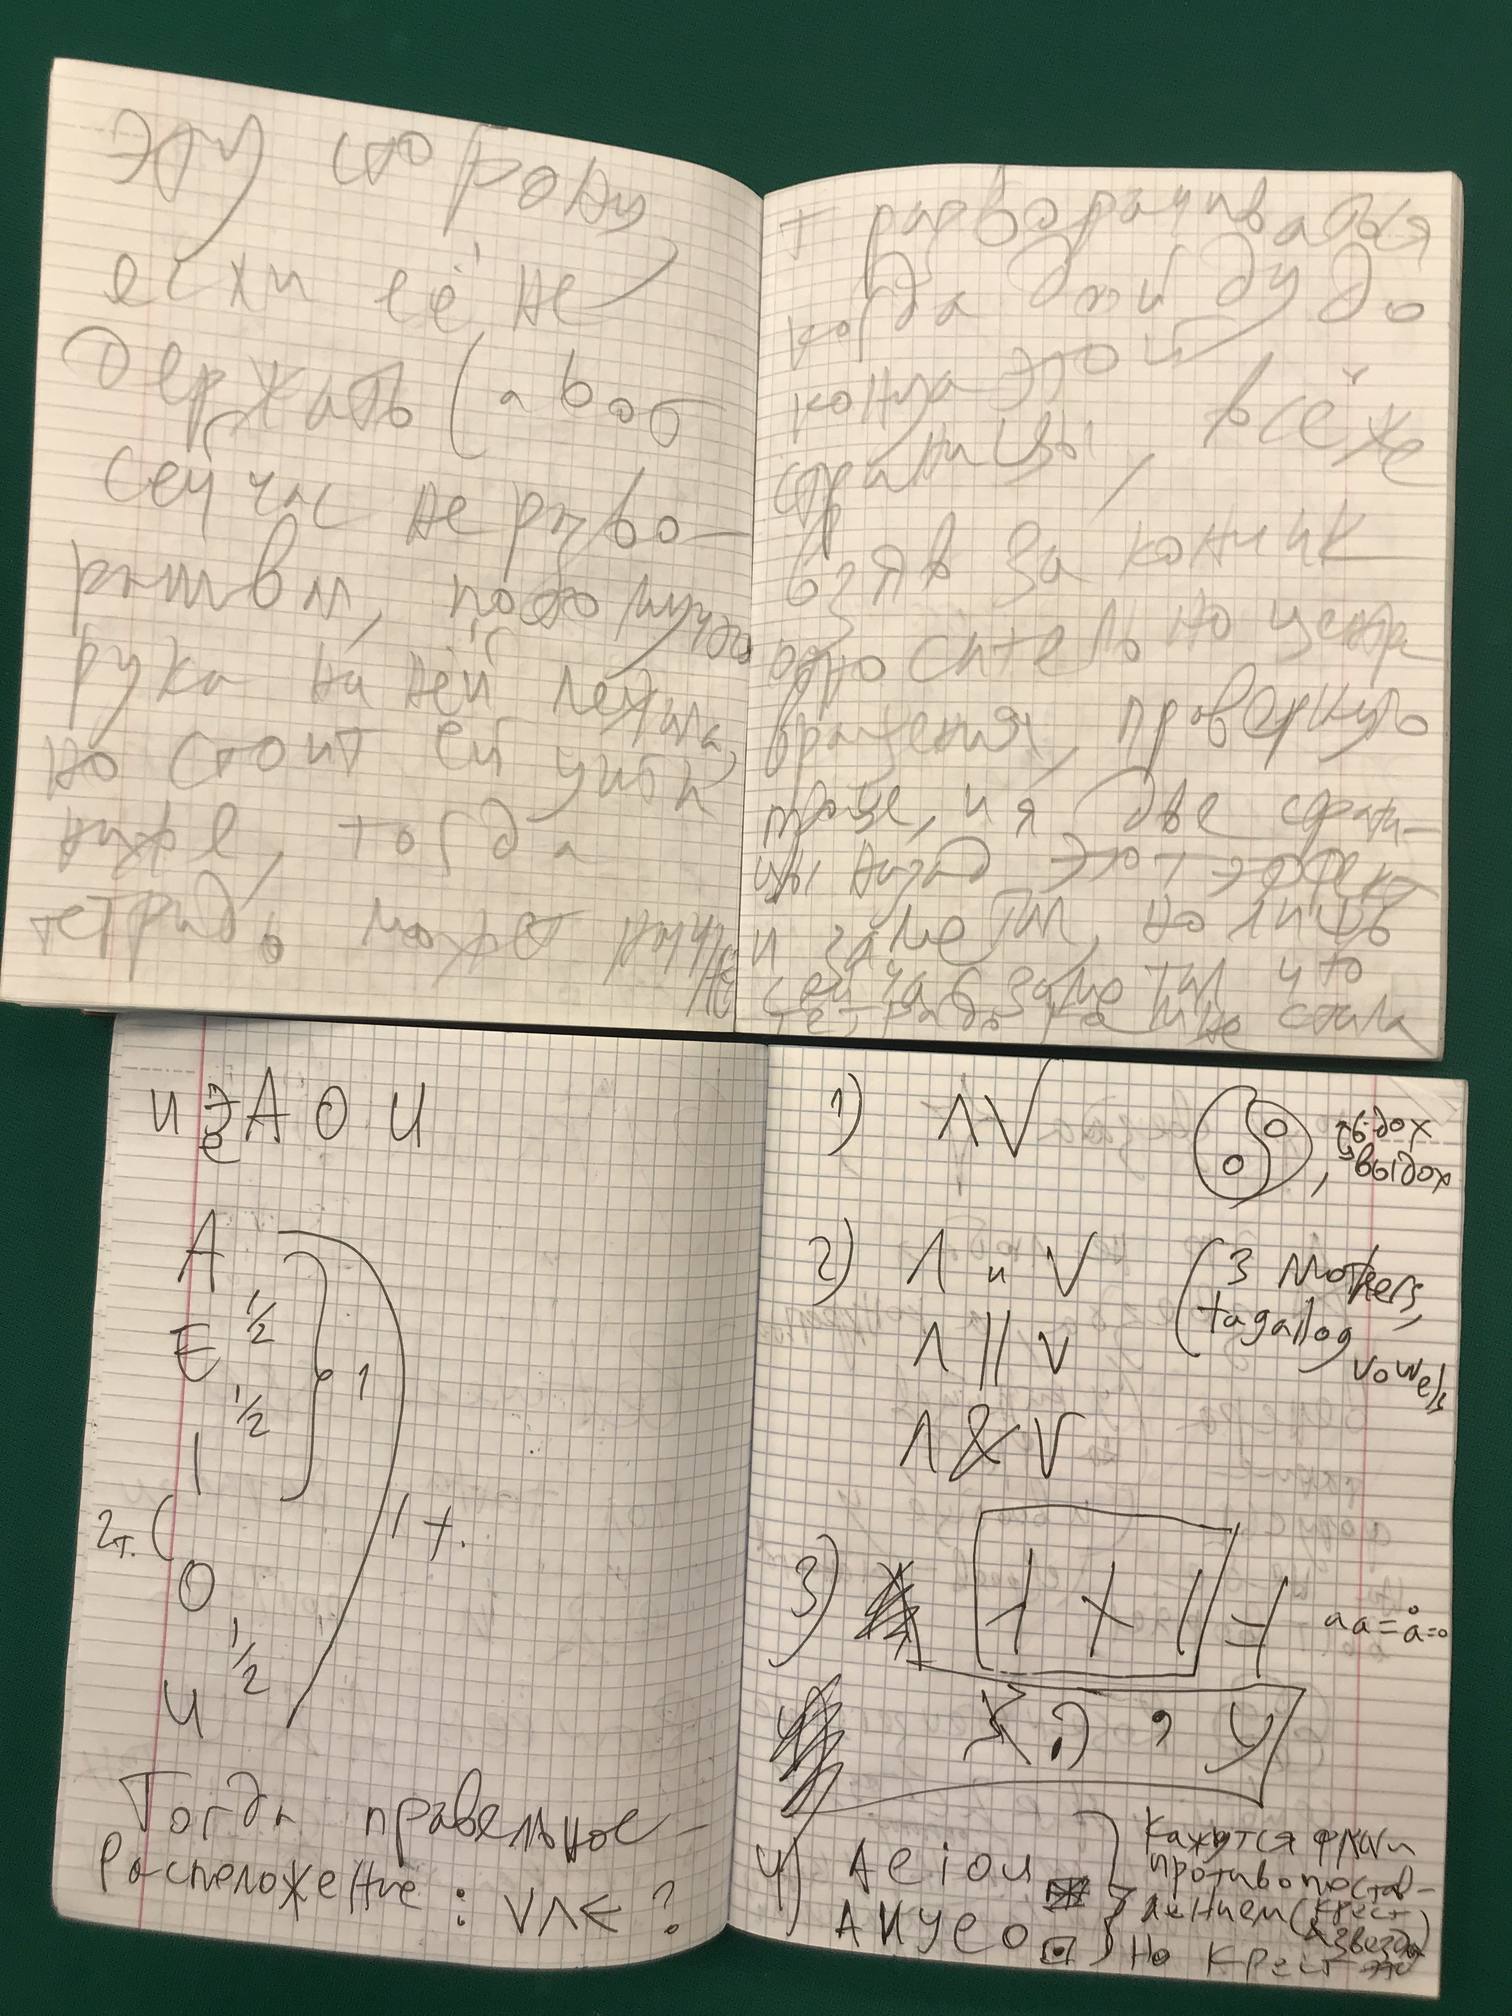 эту сторону,
если её не
держать (а вот
сейчас не разво-
рачивал, потому что
рука на ней лежала,
но стоит ей уйти
ниже, тогда
тетрадь может начи
на
т разворачиваться
когда дойду до
конца этой
страницы, всё же
взяв за кончик
относительно центра
вращения, провернуть
проще, и я две страни-
цы назад этот эффект
и заметил, но лишь
сейчас заметил что
тетрадь не стала
И Э А О U
е
А
1/2
E
1/2
1
I
2т. (
1 т.
O
1/2
U
Тогда правельное
располежение : V Λ < ?
1) Λ V
вдох
, выдох
2) Λ и V
(3 Mothers,
tagallog
vowels
Λ || V
Λ & V
3)
aa = å = o
, У
4) Aeiou
АИУЕО
Кажутся
противопостав-
лением (крест
& звезда)
Но крест